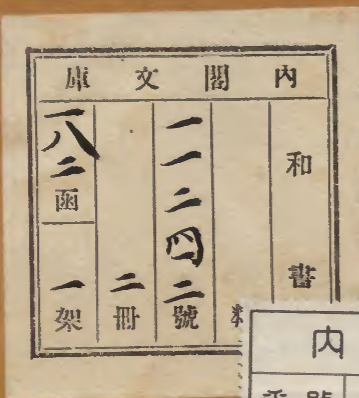 內閣文庫
和書
一一二四二號
二冊
一八二函
一架
内